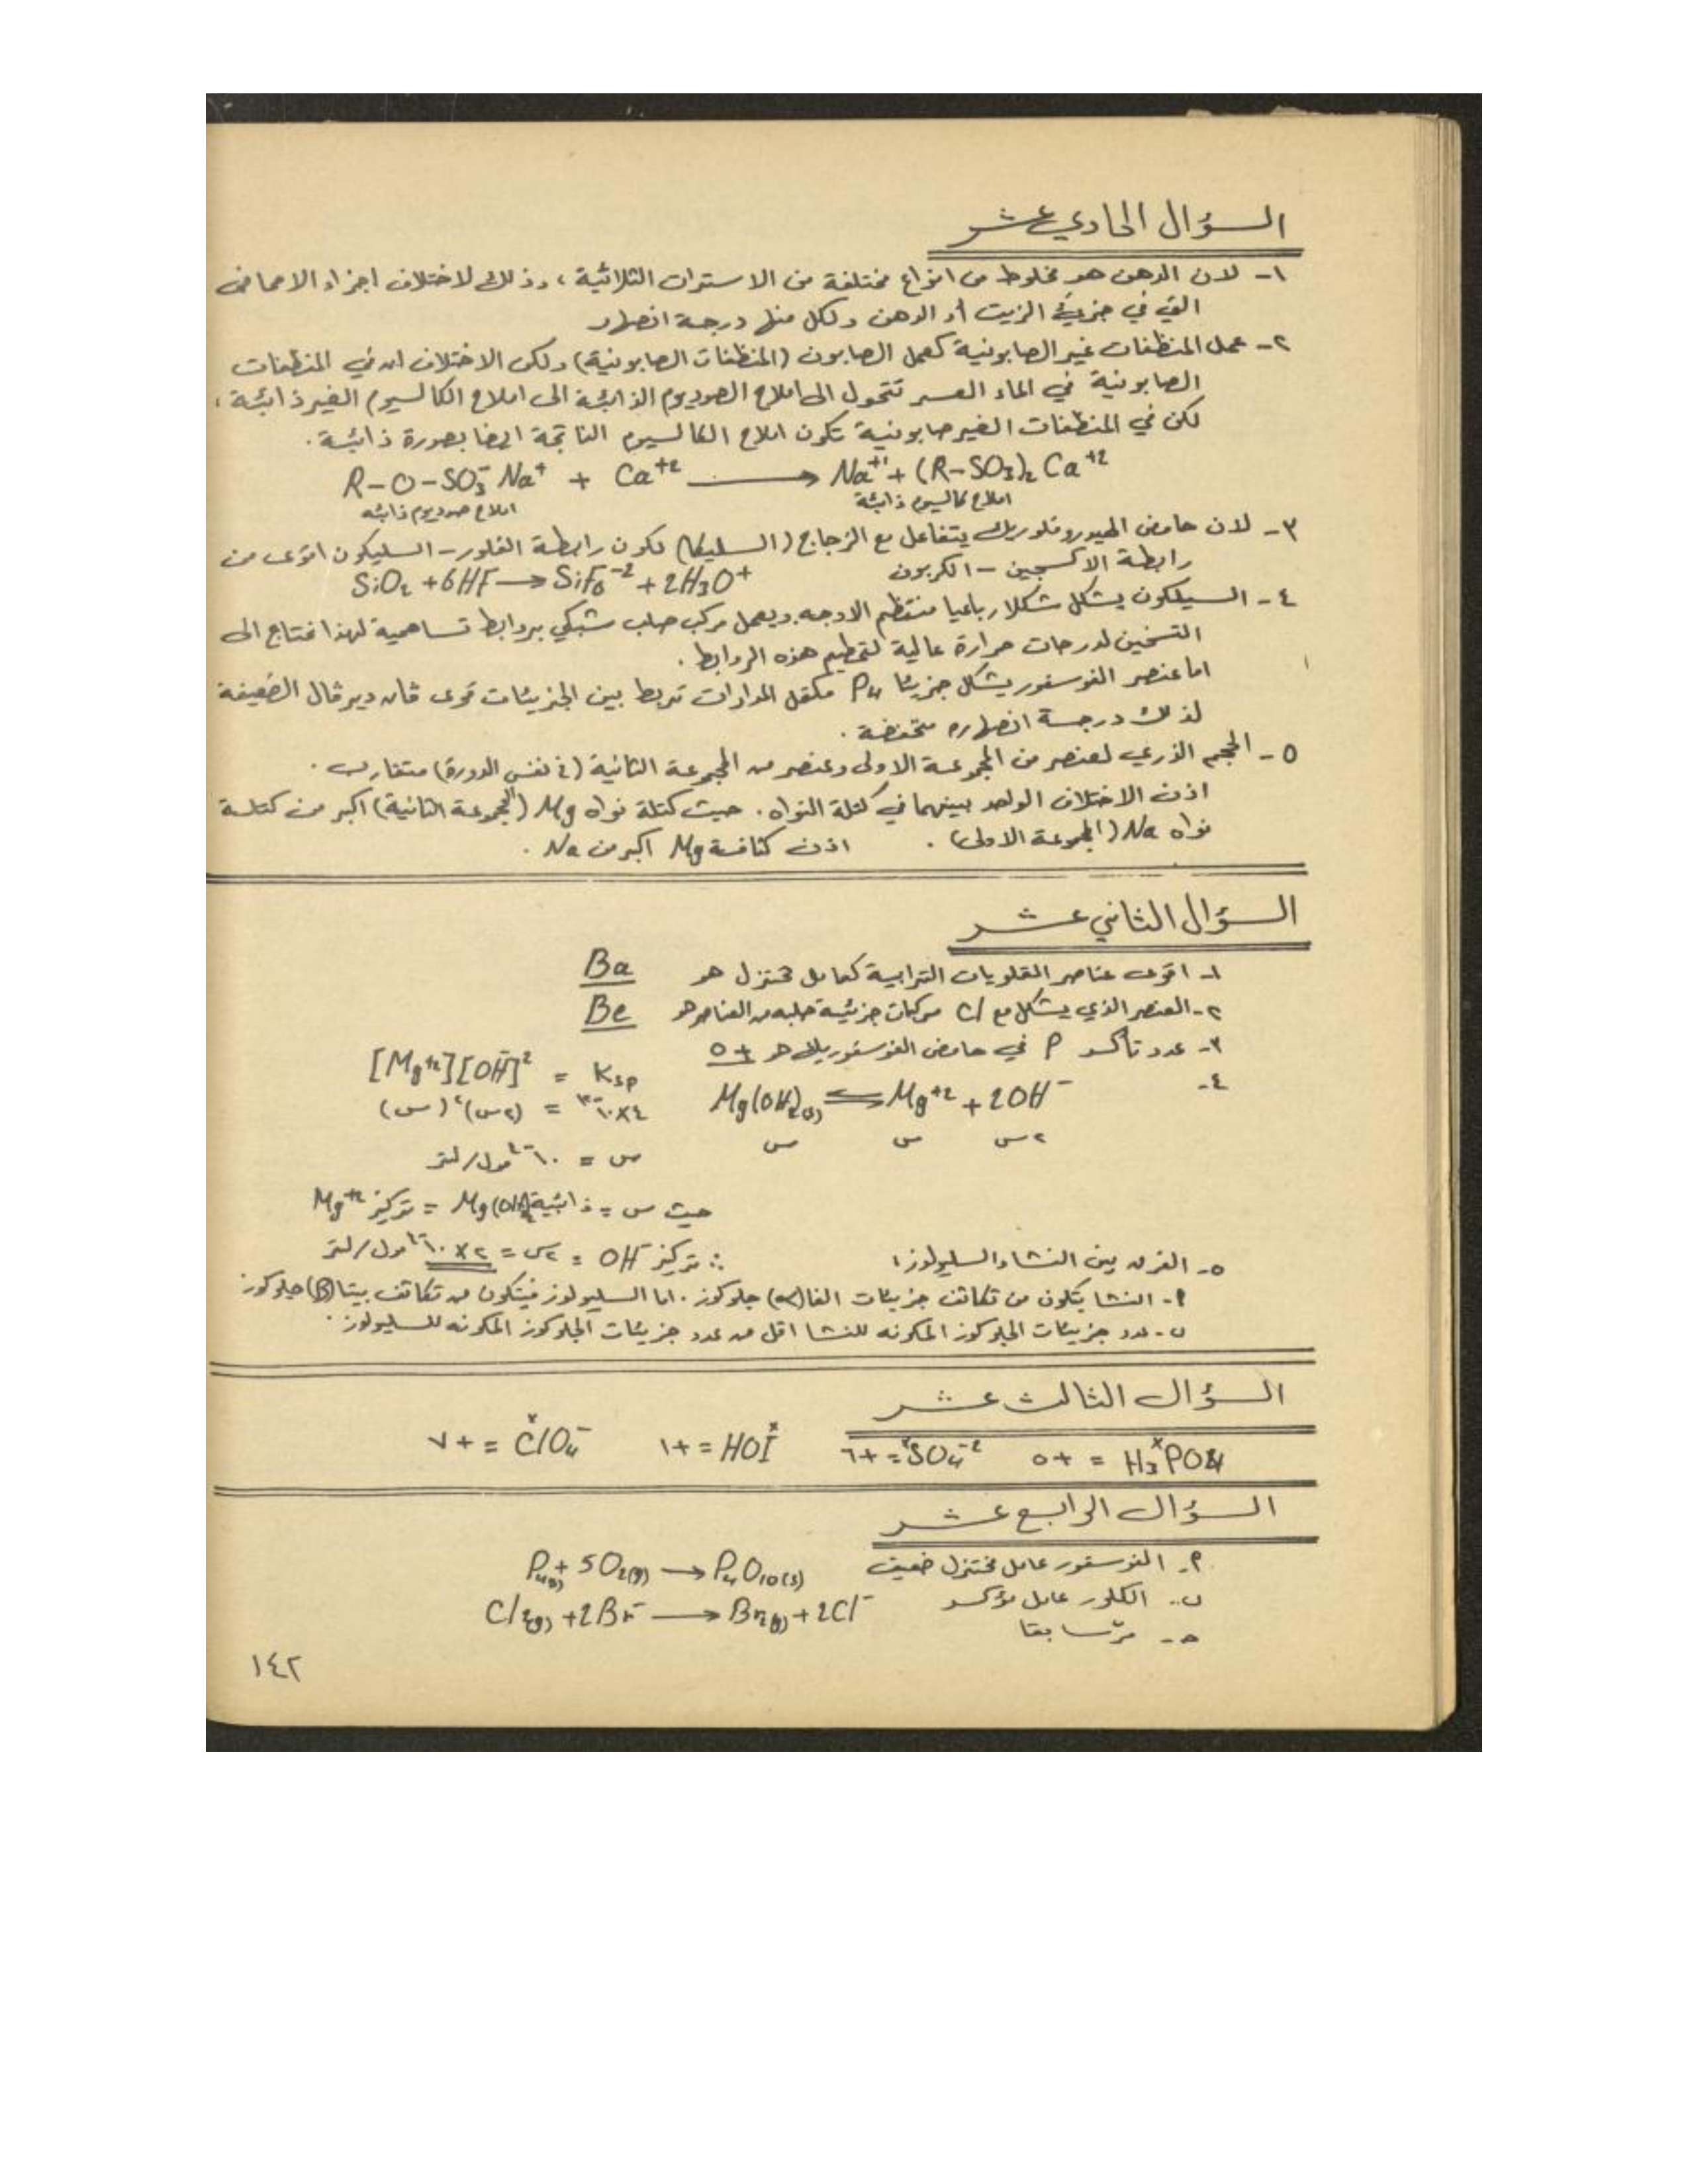 السؤال الحادي عشر
١- لان الدهن هو مخلوط من انواع مختلفة من الاسترات الثلاثية ، وذلك لاختلاف اجزاء الاحماض
التي في جزيئ الزيت أو الدهن ولكل منها درجة انصهار
٢- عمل المنظفات غير الصابونية كعمل الصابون (المنظفات الصابونية) ولكن الاختلاف انه في المنظفات
الصابونية في الماء العسر تتحول الى املاح الصوديوم الذائبة الى املاح الكالسيوم الغير ذائبة ،
لكن في المنظفات الغير صابونية تكون املاح الكالسيوم الناتجة ايضا بصورة ذائبة .
R-O-SO₃⁻ Na⁺ + Ca⁺² ⟶ Na⁺¹ + (R-SO₃)₂ Ca⁺²
املاح صوديوم ذائبه املاح كالسيوم ذائبة
٣- لان حامض الهيدروفلوريك يتفاعل مع الزجاج (السليكا) لكون رابطة الفلور - السليكون اقوى من
رابطة الاكسجين - الكربون SiO₂ + 6HF ⟶ SiF₆⁻² + 2H₃O⁺
٤- السيلكون يشكل شكلا رباعيا منتظم الاوجه ويعمل مركب صلب شبكي بروابط تساهمية لهذا نحتاج الى
التسخين لدرجات حرارة عالية لتحطيم هذه الروابط .
اما عنصر الفوسفور يشكل جزيئا P₄ مكتمل المدارات تربط بين الجزيئات قوى فان ديرفال الضعيفة
لذلك درجة انصهاره منخفضة .
٥- الحجم الذري لعنصر من المجموعة الاولى وعنصر من المجموعة الثانية (في نفس الدورة) متقارب .
اذن الاختلاف الوحد بينهما في كتلة النواه . حيث كتلة نواه Mg (المجموعة الثانية) اكبر من كتلة
نواه Na (المجموعة الاولى) . اذن كثافة Mg اكبر من Na .
السؤال الثاني عشر
١- اقوى عناصر القلويات الترابية كعامل مختزل هو Ba
٢- العنصر الذي يشكل مع Cl مركبات جزيئية صلبه من العناصر هو Be
٣- عدد تأكسد P في حامض الفوسفوريك هو +٥
٤- Mg(OH)₂(s) ⇌ Mg⁺² + 2OH⁻ [Mg⁺²][OH⁻]² = Ksp
س س ٢س (س) (٢س)² = ٤×١٠⁻¹²
س = ١٠⁻⁴ مول/لتر
حيث س = ذائبية Mg(OH)₂ = تركيز Mg⁺²
∴ تركيز OH⁻ = ٢س = ٢×١٠⁻⁴ مول/لتر
٥- الفرق بين النشا والسليولوز :
أ- النشا يتكون من تكاثف جزيئات الفا (α) جلوكوز . اما السليولوز فيتكون من تكاثف بيتا (β) جلوكوز
ب- عدد جزيئات الجلوكوز المكونه للنشا اقل من عدد جزيئات الجلوكوز المكونه للسليولوز .
السؤال الثالث عشر
H₃PO₄ = +٥ SO₄⁻² = +٦ HOI = +١ ClO₄⁻ = +٧
السؤال الرابع عشر
أ- الفوسفور عامل مختزل ضعيف P₄(s) + 5O₂(g) ⟶ P₄O₁₀(s)
ب- الكلور عامل مؤكسد Cl₂(g) + 2Br⁻ ⟶ Br₂(g) + 2Cl⁻
ح- مرّ سابقا
١٤٢